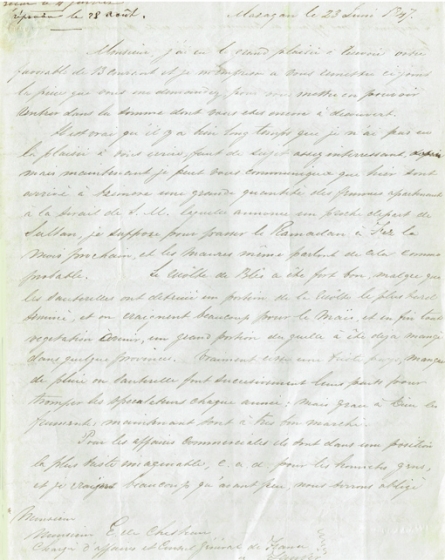 répondu le 28 Août.
Mazagan le 23 Juin 1847.
Monsieur, j'ai eu le grand plaisir à recevoir votre
favorable de courant et je m'empresse à vous remettre ci joint
la pièce que vous me demandez pour vous mettre en pouvoir
entrer dans la somme dont vous êtes encore à découvert.
Il est vrai qu'il y a bien long temps que je n'ai pas eu
le plaisir à vous écrire, faute de sujet assez interessant,
mais maintenant je peut vous communiquer que hier sont
arrivé à une grande quantité des femmes apartenant
à la de S. M. laquelle annonce un proche depart du
Sultan, je suppose pour passer le Ramadan à Fez le
mois prochain, et les Maures même parlent de cela comme
probable. La récolte de Blés a été fort bon, malgré que
les sauterelles ont détruit un portion de la récolte le plus tard
semée, et on craignent beaucoup pour le Maïs, et en fin toute
vegetation, un grand portion de quelle à été deja mangé
dans quelque province. Vraiment c'est une triste pays, manque
de pluie ou sauterelle font successivement leurs parts pour
tromper les chaque année: mais grace à Dieu les
maintenant sont à très bon marché.
Pour les affaires commerciales ils sont dans une position
la plus triste imaginable, c. a. d. pour les
et je crains beaucoup qu'avant peu, nous serons obligé
Monsieur
Monsieur E. de Chasteau
Chargé d'affaires et Consul Général de France